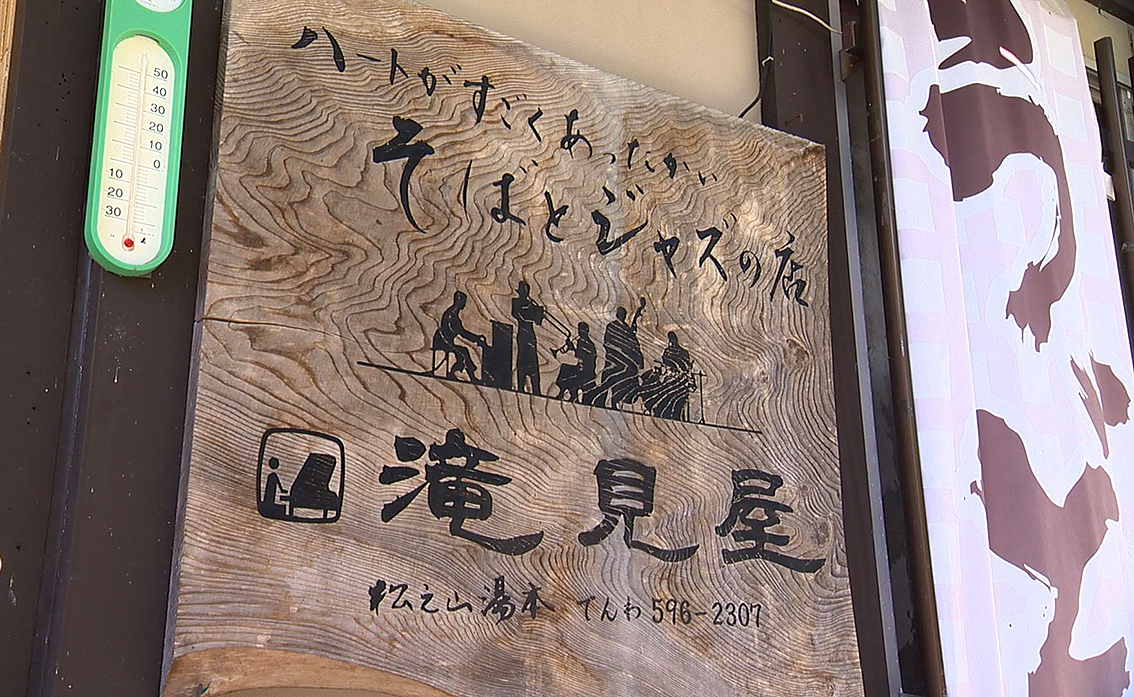 ハートがすごくあったかい
そばとジャズの店
滝見屋
松之山湯本 てんわ 596-2307
50
40
30
20
10
0
10
20
30